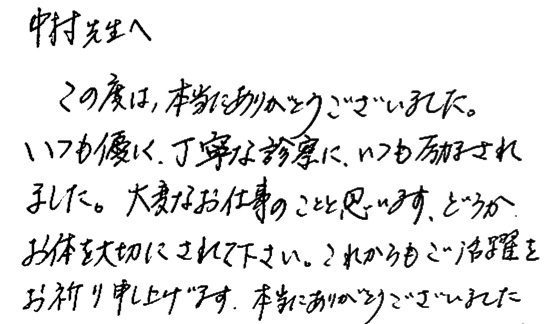 中村先生へ
この度は,本当にありがとうございました。
いつも優しく、丁寧な診察に、いつも励まされ
ました。大変なお仕事のことと思います、どうか
お体を大切にされて下さい。これからもご活躍を
お祈り申し上げます、本当にありがとうございました